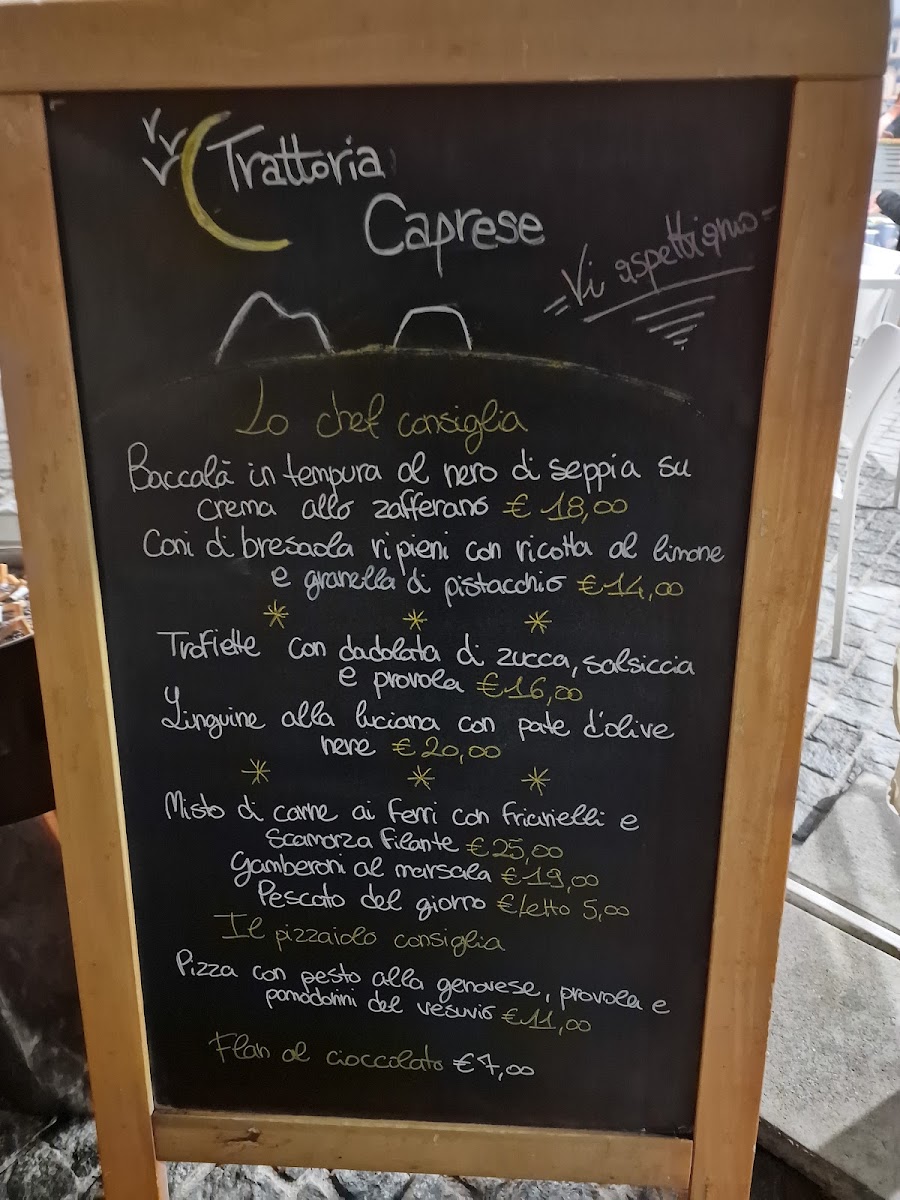 Trattoria
Caprese
Vi aspettiamo
Lo chef consiglia
Baccalà in tempura al nero di seppia su
crema allo zafferano € 18,00
Coni di bresaola ripieni con ricotta al limone
e granella di pistacchio € 14,00
Trofiette con dadolata di zucca, salsiccia
e provola € 16,00
Linguine alla luciana con patè d'olive
nere € 20,00
Misto di carne ai ferri con friarielli e
scamorza filante € 25,00
Gamberoni al marsala € 19,00
Pescato del giorno €/etto 5,00
Il pizzaiolo consiglia
Pizza con pesto alla genovese, provola e
pomodorini del vesuvio € 11,00
Flan al cioccolato € 7,00